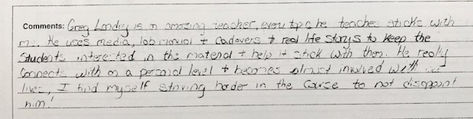 Comments: Greg Landry is an amazing teacher, every topic he teaches sticks with
m... He uses media, lab manual + cadavers + real life storys to keep the
students interested in the material + help it stick with them. He really
connects with on a personal level + becomes almost involved with
lives, I find myself striving harder in the course to not disappoint
him!